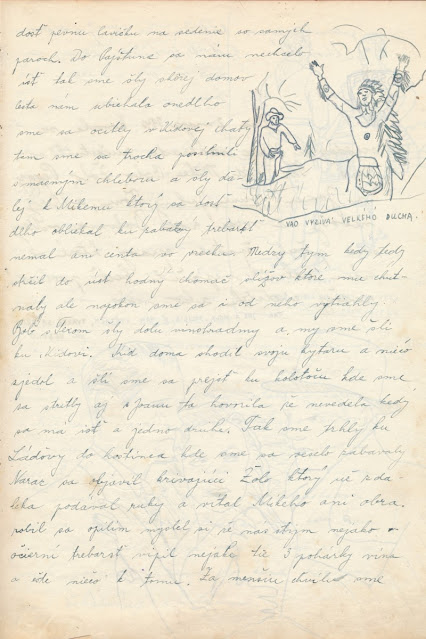 dosť pevnú lavičku na sedenie so samých
paroch. Do Bajštune sa nám nechcelo
ísť tak sme šly skôrej domov
cesta nám ubiehala onedlho
sme sa ocitly v Kidovej chaty
tam sme sa trocha posilnili
s masným chlebom a šly ďa
lej k Mikemu ktorý sa dosť
dlho obliekal ku pobatoy trebarsť
nemal ani centa vo vrecku. Medzi tým kedy tedy
strčil do úst hodný chomáč slížov ktoré mu chut-
naly ale napokon sme sa i od neho vytriahly.
Bolo s Ferom šly dolu vinohradmy a my sme šli
ku Kidovi. Kid doma shodil svoju kytaru a niečo
zjedol a šli sme sa prejsť ku kolotoču kde sme
sa stretly aj s Joanu tá hovorila že nevedela kedy
sa má ísť a jedno druhé. Tak sme trhly ku
Ládovy do hostinca kde sme sa veselo zabávaly
Naraz sa objavil krivajúci Žolo ktorý už zda-
leka podával ruky a vítal Mikeho ani obra.
robil sa opilím myslel si že nás stým nejako
očierni trebarsť vipil nejaké tie 3 pohárky vína
a ešte niečo k tomu. Za menšiu chvíľu sme
VAO VYZÍVA VEĽKÉHO DUCHA.